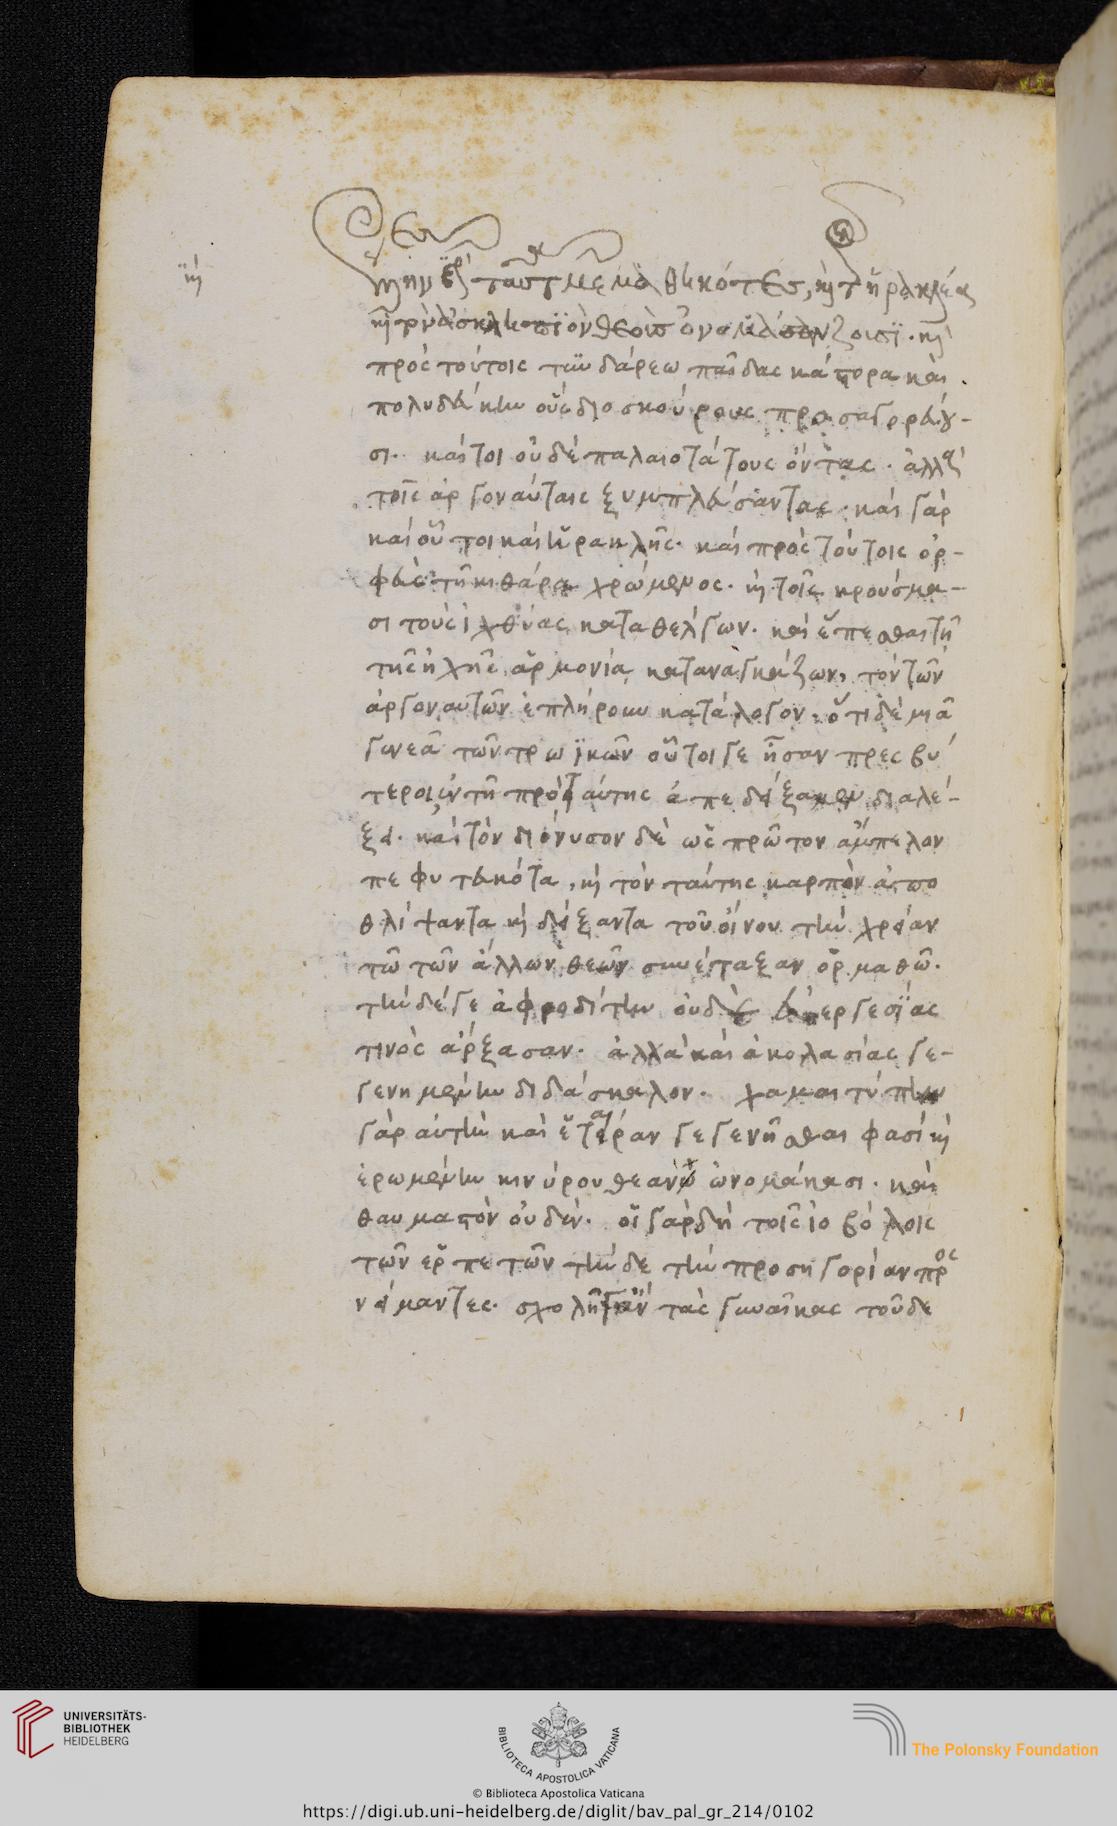 ιη
μεμαθηκότες, κὴ τ ἡρακλέα
κὴ τὸν ἀσκληπιὸν θεοὺς ὀνομάζουσι. κὴ
πρὸς τούτοις τυνδάρεω παῖδας κάστορα καὶ
πολυδεύκην οὓς διοσκούρους προσαγορεύου-
σι. καίτοι οὐδὲ παλαιοτάτους ὄντας. ἀλλὰ
τοῖς ἀργοναύταις ξυμπλεύσαντας. καὶ γὰρ
καὶ οὗτοι καὶ ἡρακλῆς. καὶ πρὸς τούτοις ὀρ-
φεὺς τῆ κιθάρα χρώμενος. κὴ τοῖς κρούσμα-
σι τοὺς ἰχθύας καταθέλγων. καὶ ἕπεσθαι τῆ
τῆς ἠχῆς ἁρμονία καταναγκάζων, τὸν τῶν
ἀργοναυτῶν ἐπλήρουν κατάλογον. ὅτι δὲ μιᾶ
γενεᾶ τῶν τρωϊκῶν οὗτοί γε ἦσαν πρεσβύ
τεροι ἐν τῆ πρὸ ταύτης ἀπεδείξαμεν διαλέ-
ξει. καὶ τὸν διόνυσον δὲ ὡς πρῶτον ἄμπελον
πεφυτευκότα, κὴ τὸν ταύτης καρπὸν ἀπο
θλίψαντα κὴ δείξαντα τοῦ οἴνου τὴν χρείαν
τῶ τῶν ἄλλων θεῶν συνέταξαν ὁρμαθῶ.
τὴν δέ γε ἀφροδίτην οὐδὲ εὐεργεσίας
τινὸς ἄρξασαν. ἀλλὰ καὶ ἀκολασίας γε-
γενημένην διδάσκαλον. χαμαιτύπην
γὰρ αὐτὴν καὶ ἑταίραν γεγενῆσθαι φασί κὴ
ἐρωμένην κινύρου θεὰν ὠνομάκασι. καὶ
θαυμαστὸν οὐδέν. οἳ γὰρ δὴ τοῖς ἰοβόλοις
τῶν ἑρπετῶν τήνδε τὴν προσηγορίαν προς
νείμαντες. σχολῆ γ' ἂν τὰς γυναῖκας τοῦδε
UNIVERSITÄTS-
BIBLIOTHEK
HEIDELBERG
BIBLIOTECA APOSTOLICA VATICANA
The Polonsky Foundation
© Biblioteca Apostolica Vaticana
https://digi.ub.uni-heidelberg.de/diglit/bav_pal_gr_214/0102